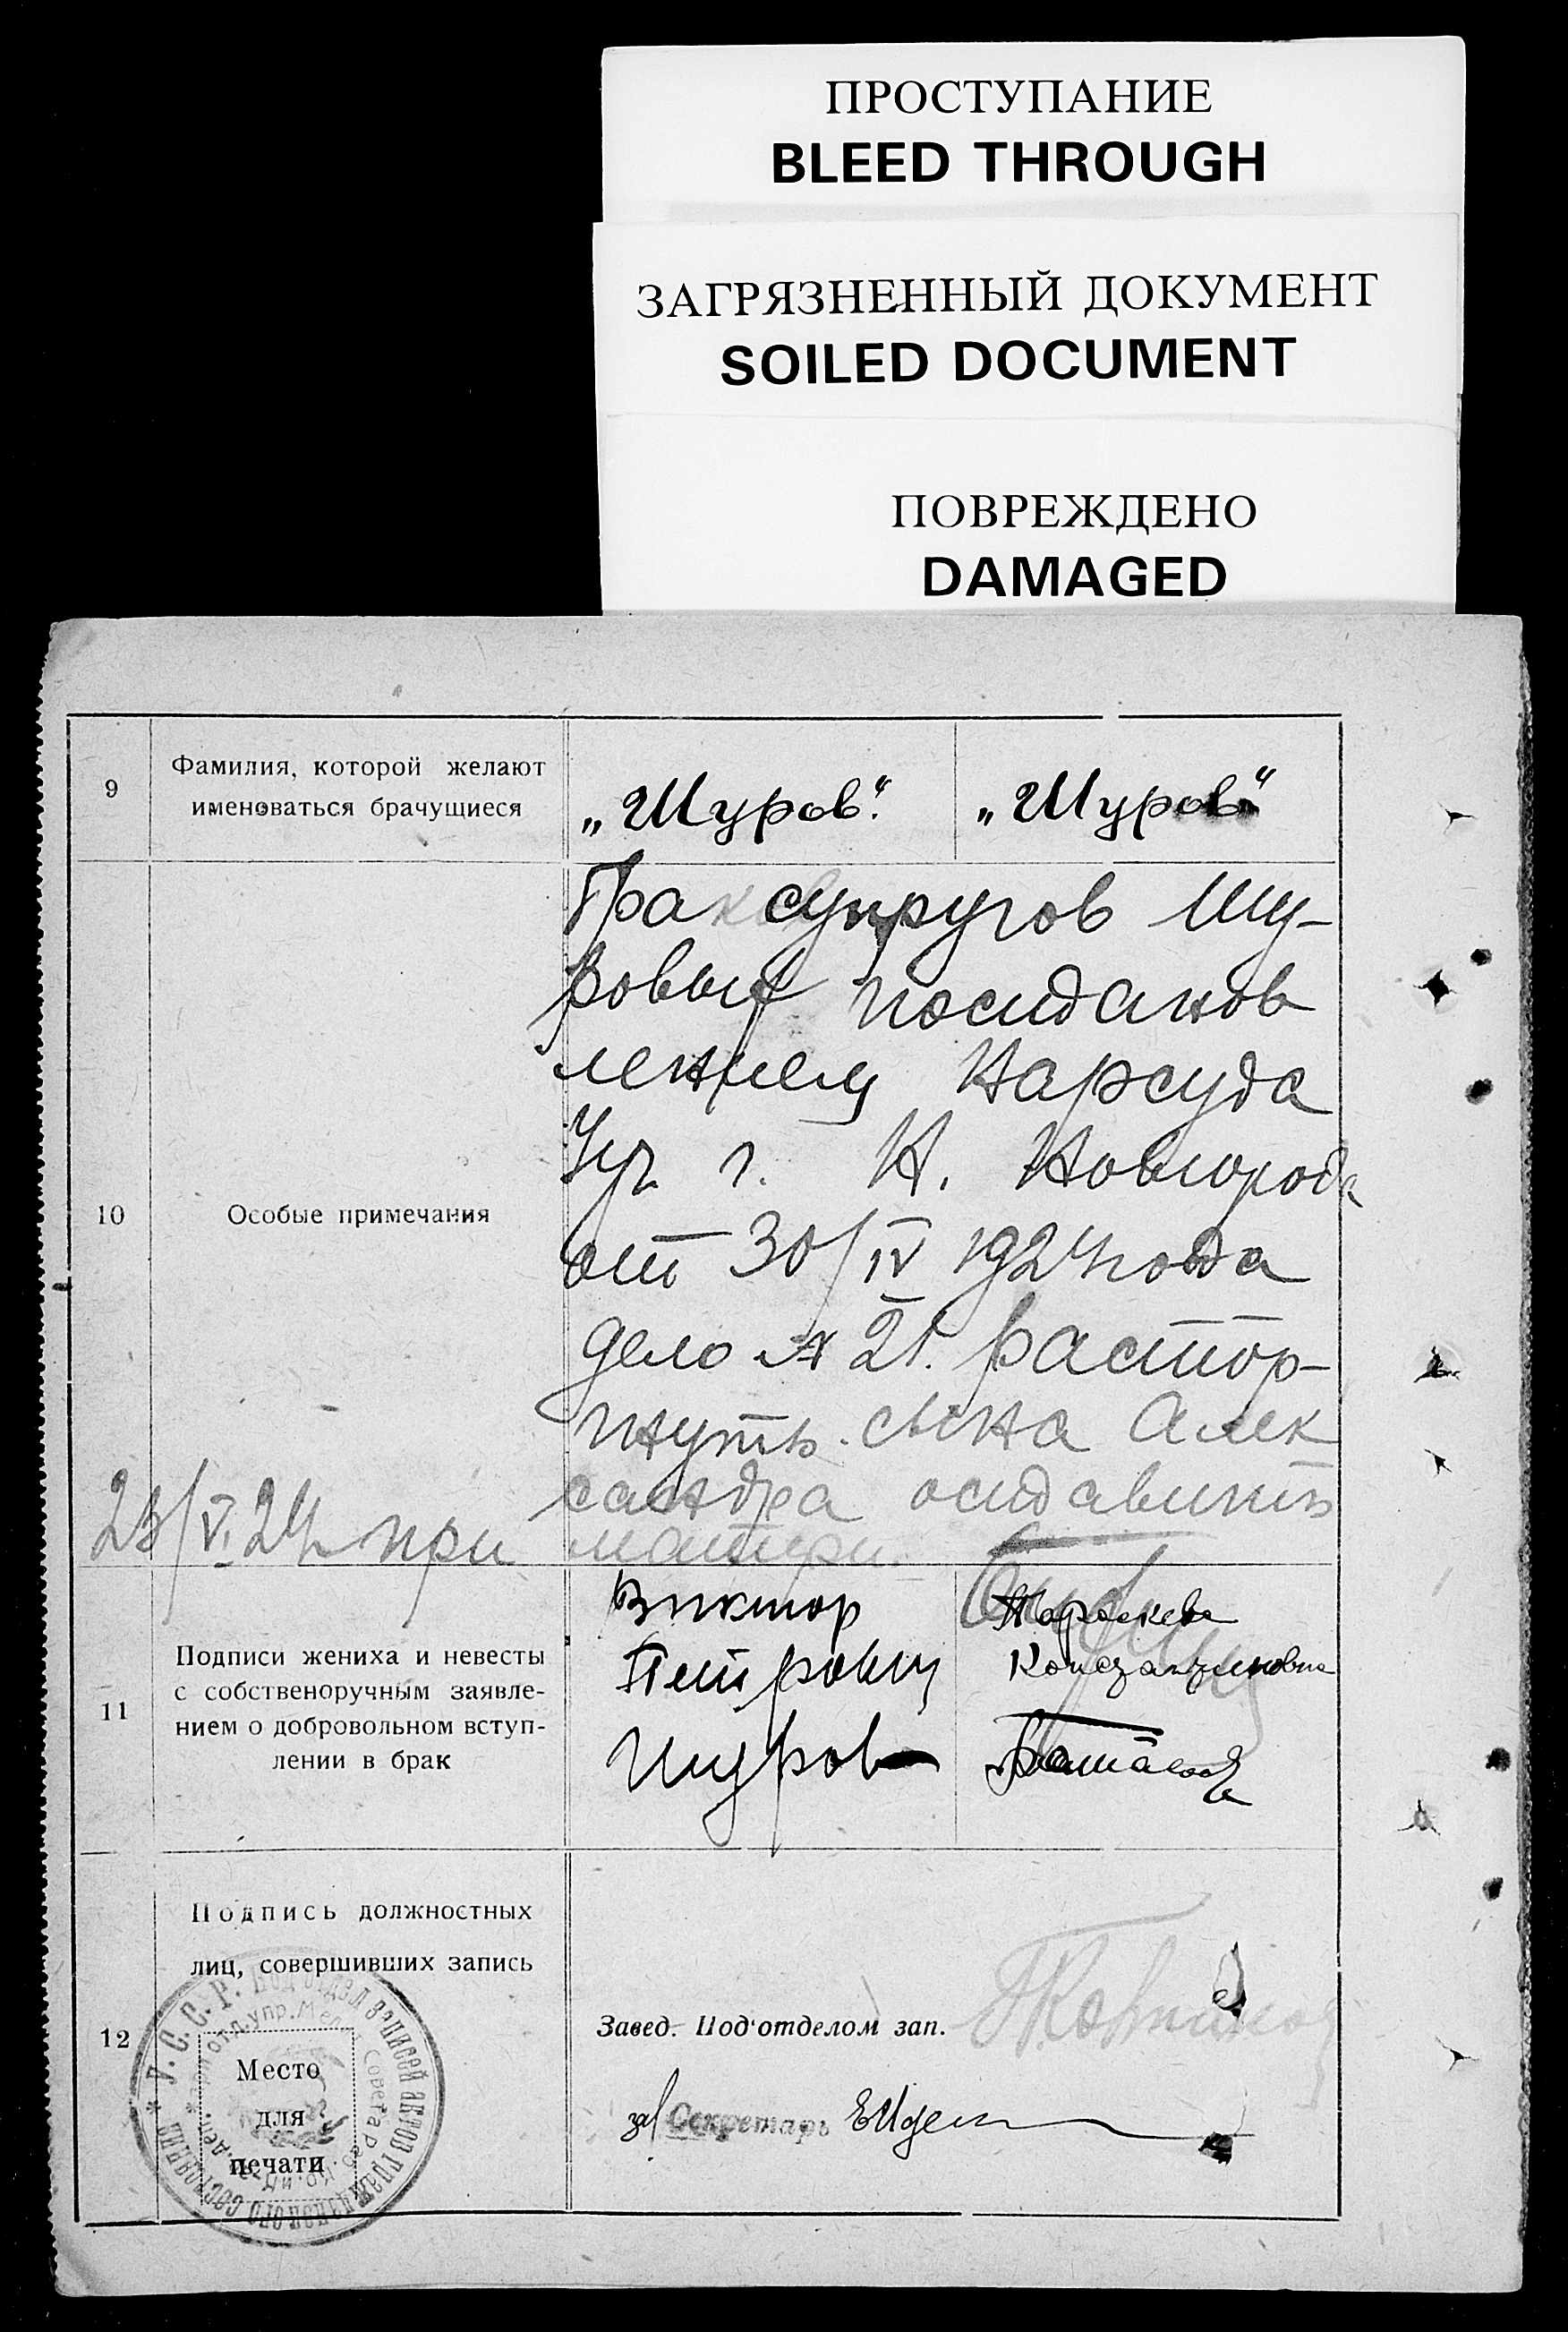 ПРОСТУПАНИЕ
BLEED THROUGH
ЗАГРЯЗНЕННЫЙ ДОКУМЕНТ
SOILED DOCUMENT
ПОВРЕЖДЕНО
DAMAGED
9
Фамилия, которой желают
именоваться брачущиеся
„Шуров“. „Шуров“
10
Особые примечания
Брак супругов Шу-
ровых постанов
лением Нарсуда
г. Н. Новгорода
от 30/IV 1924 года
дело № 21. растор-
гнуть. сына Алек
сандра оставить
23/VI 24 г. при матери.
11
Подписи жениха и невесты
с собственоручным заявле-
нием о добровольном вступ-
лении в брак
Виктор
Петрович
Шуров
Параскева
Константиновна
12
Подпись должностных
лиц, совершивших запись
Место
для
печати
Завед. Под'отделом зап.
за Секретарь